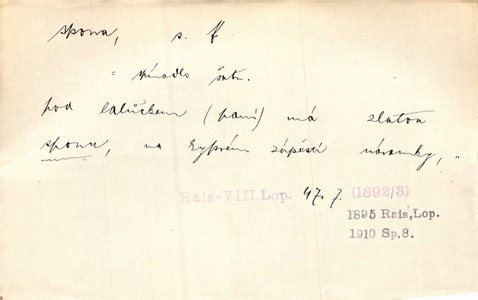 spona, s. f.
= spínadlo šatu.
pod lalůčkem (paní) má zlatou
sponu, na kyprém zápěstí náramky,"
Rais-VIII.Lop. 47.7. (1892/3)
1895 Rais,Lop.
1910 Sp.8.